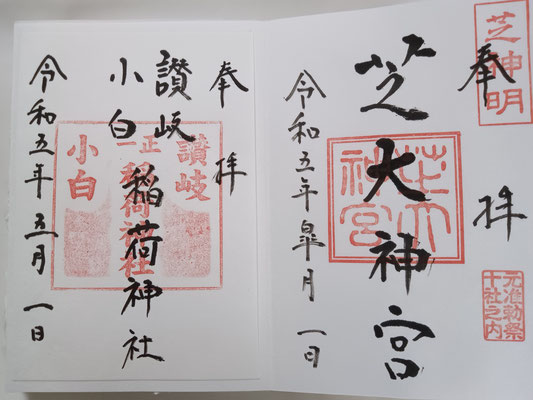 芝神明
奉拝
芝大神宮
芝大神宮
元准勅祭
十社之内
令和五年皐月一日
奉拝
讃岐
小白
稲荷神社
讃岐
正一
稲荷神社
小白
令和五年五月一日